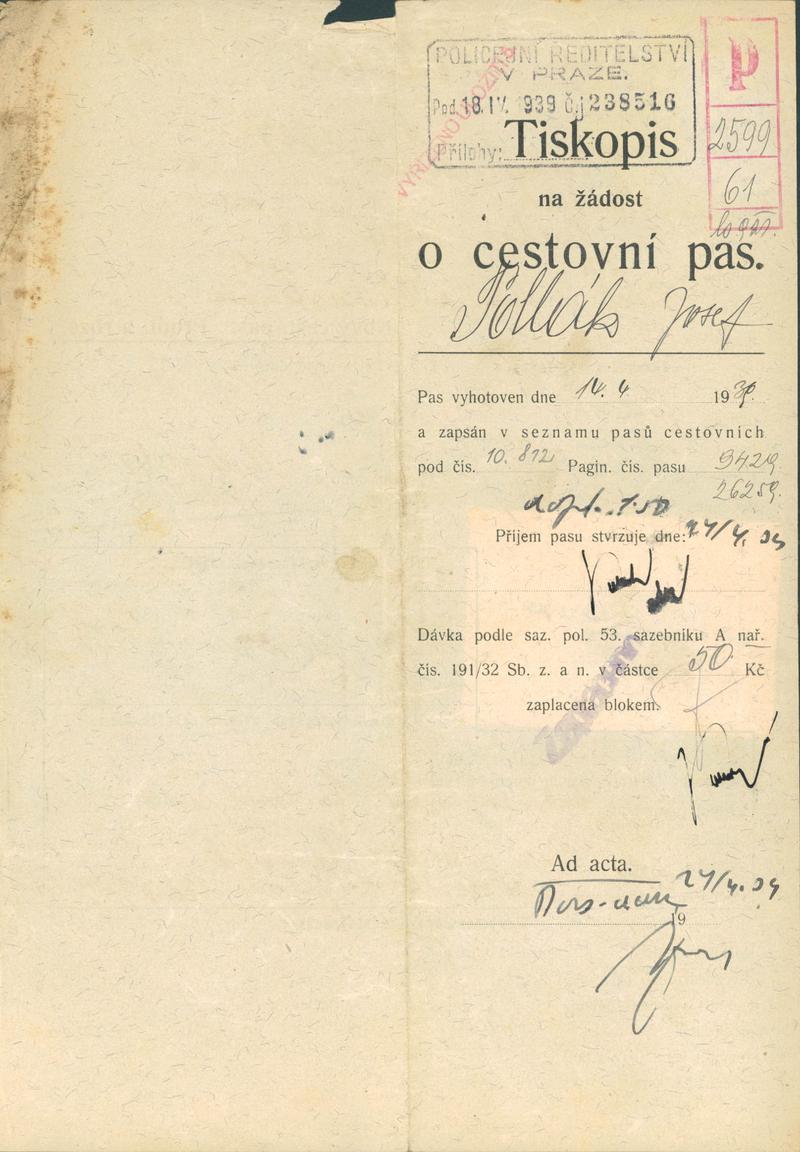 POLICEJNÍ ŘEDITELSTVÍ
V PRAZE.
Pod. 18.IV. 939 č.j. 238516
Přílohy:
P
2599
61
Tiskopis
na žádost
o cestovní pas.
Pollák Josef
Pas vyhotoven dne 14. 4 1939.
a zapsán v seznamu pasů cestovních
pod čís. 10.812 Pagin. čís. pasu 9429
26259.
dopl. 1.50
Příjem pasu stvrzuje dne: 24/4. 39
Dávka podle saz. pol. 53. sazebníku A nař.
čís. 191/32 Sb. z. a n. v částce 50 Kč
zaplacena blokem.
Ad acta.
24/4. 39
19